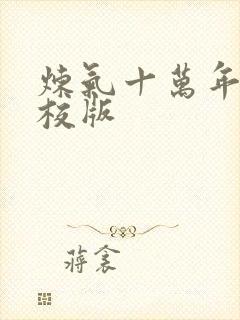 煉氣十萬年
校版
蔣衾